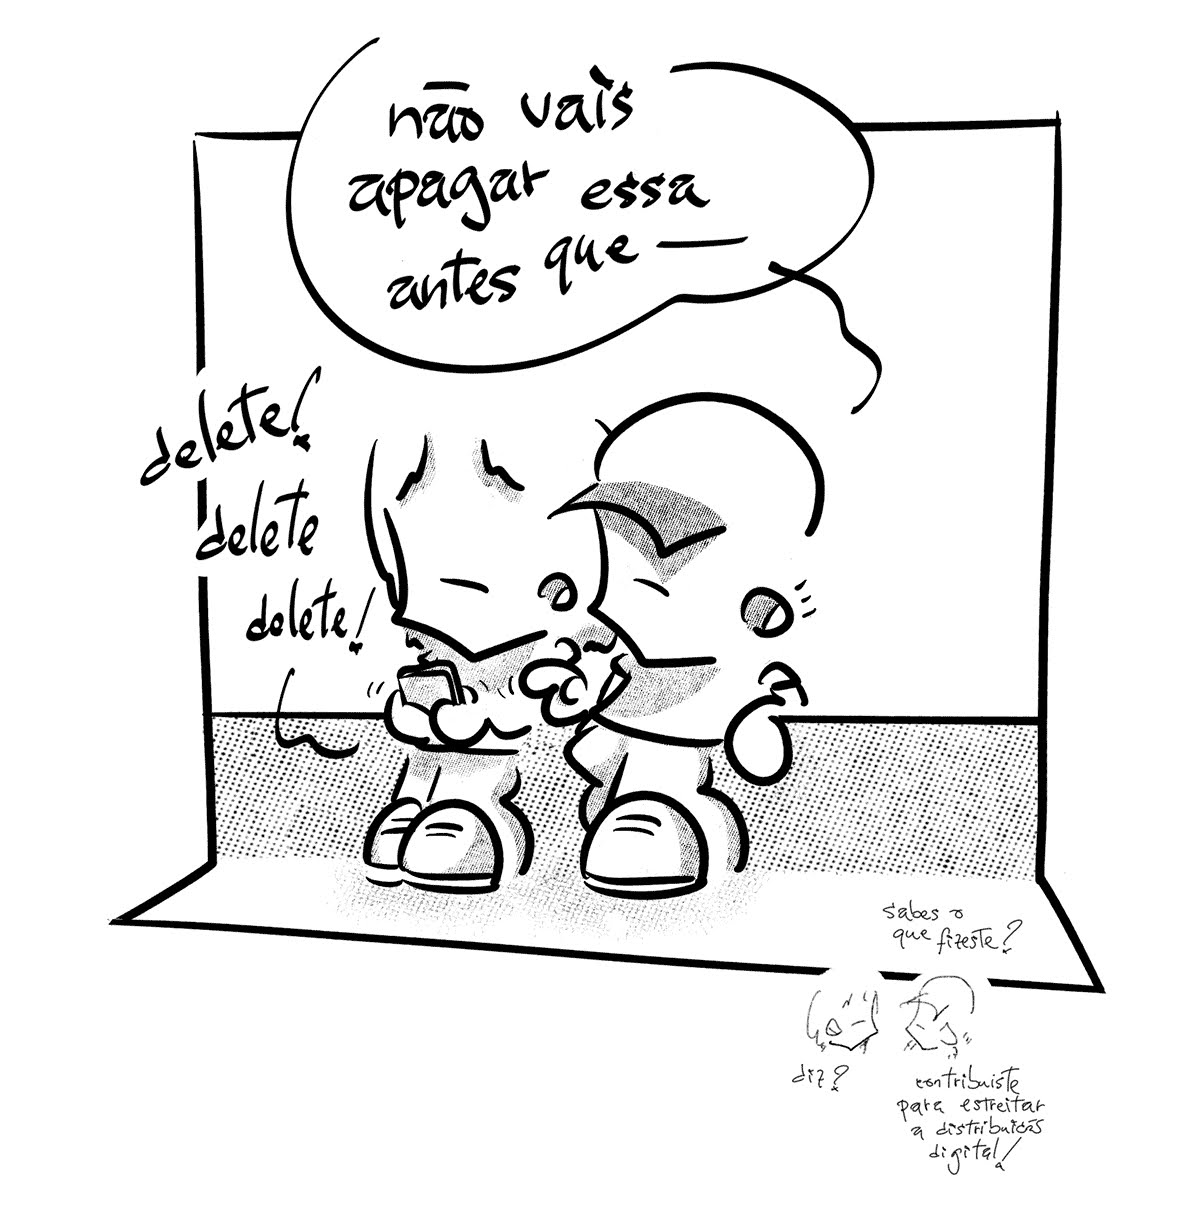 não vais
apagar essa
antes que —
delete!
delete
delete!
sabes o
que fizeste?
diz?
contribuiste
para estreitar
a distribuição
digital!